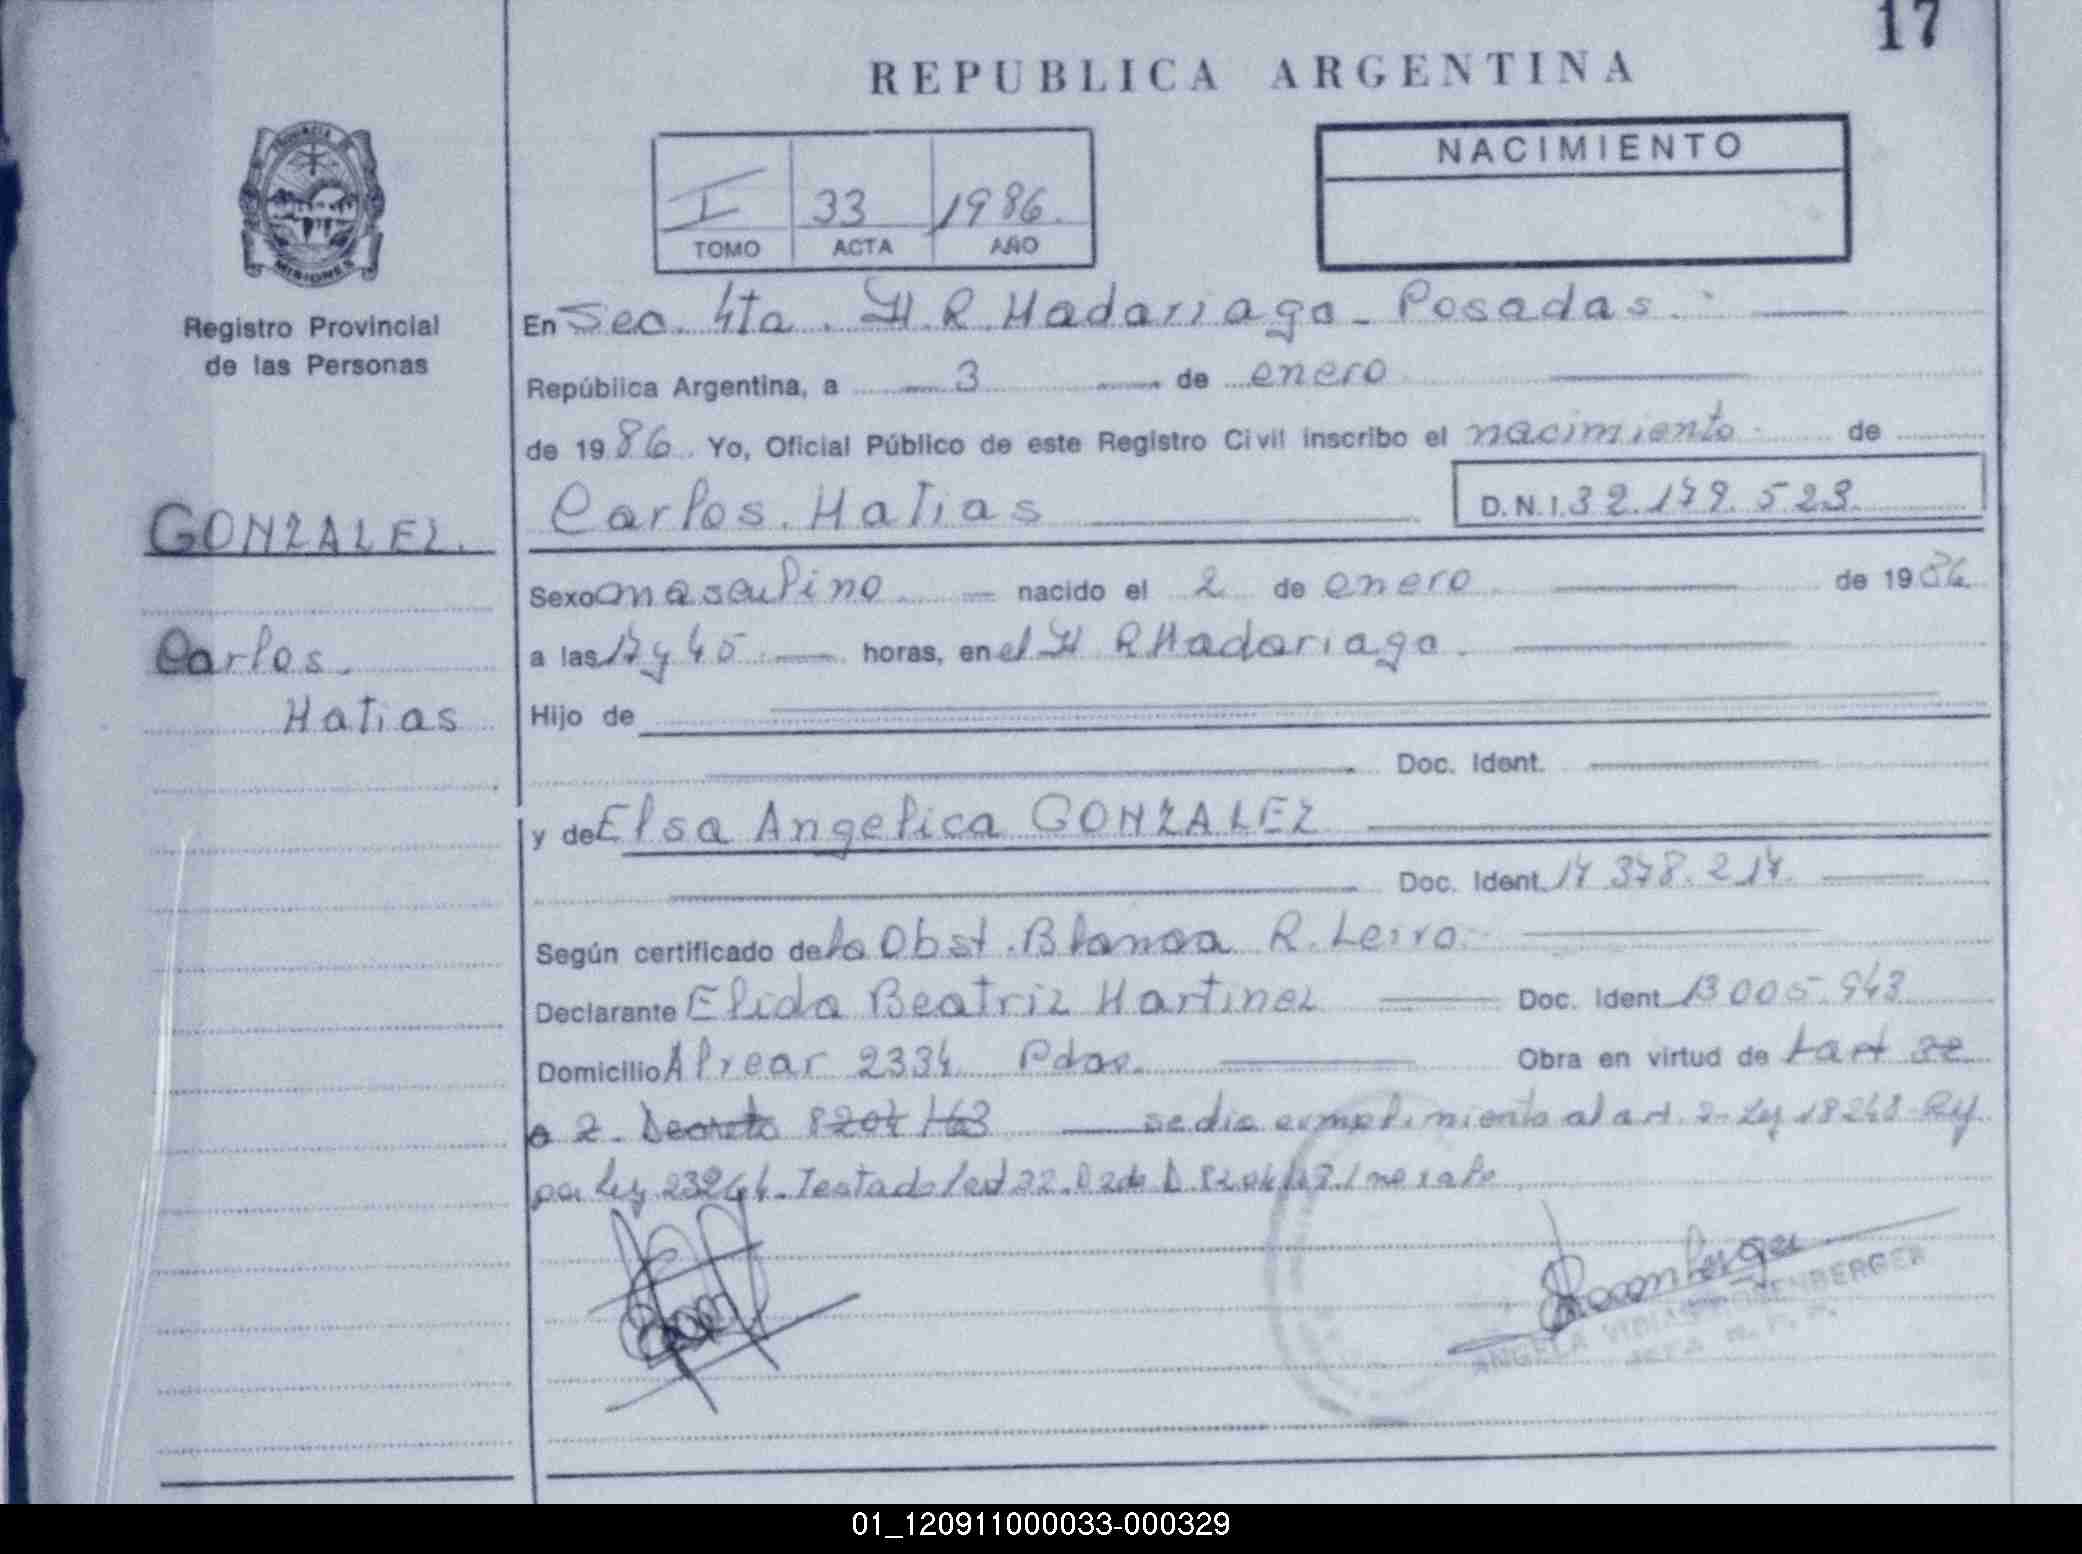 17
REPUBLICA ARGENTINA
PROVINCIA DE MISIONES
Registro Provincial
de las Personas
I 33 1986
TOMO ACTA AÑO
NACIMIENTO
En Sec. 4ta. H. R. Madariaga - Posadas.
República Argentina, a 3 de enero
de 1986. Yo, Oficial Público de este Registro Civil inscribo el nacimiento de
Carlos Matias D.N.I. 32.179.523
GONZALEZ.
Carlos
Matias
Sexo masculino nacido el 2 de enero de 1986
a las 17 y 45 horas, en el H R Madariaga
Hijo de
Doc. Ident.
y de Elsa Angelica GONZALEZ
Doc. Ident. 17 378.217
Según certificado de la Obst. Blanca R. Leiro
Declarante Elida Beatriz Martinez Doc. Ident. 13 005.943
Domicilio Alvear 2334 Pdas. Obra en virtud de
o 2. Decreto 8204/63 se dio cumplimiento al art. 2 Ley 18248
por Ley 23264. Testado no vale
ANGELA ROSENBERGER
JEFA R. P. P.
01_120911000033-000329